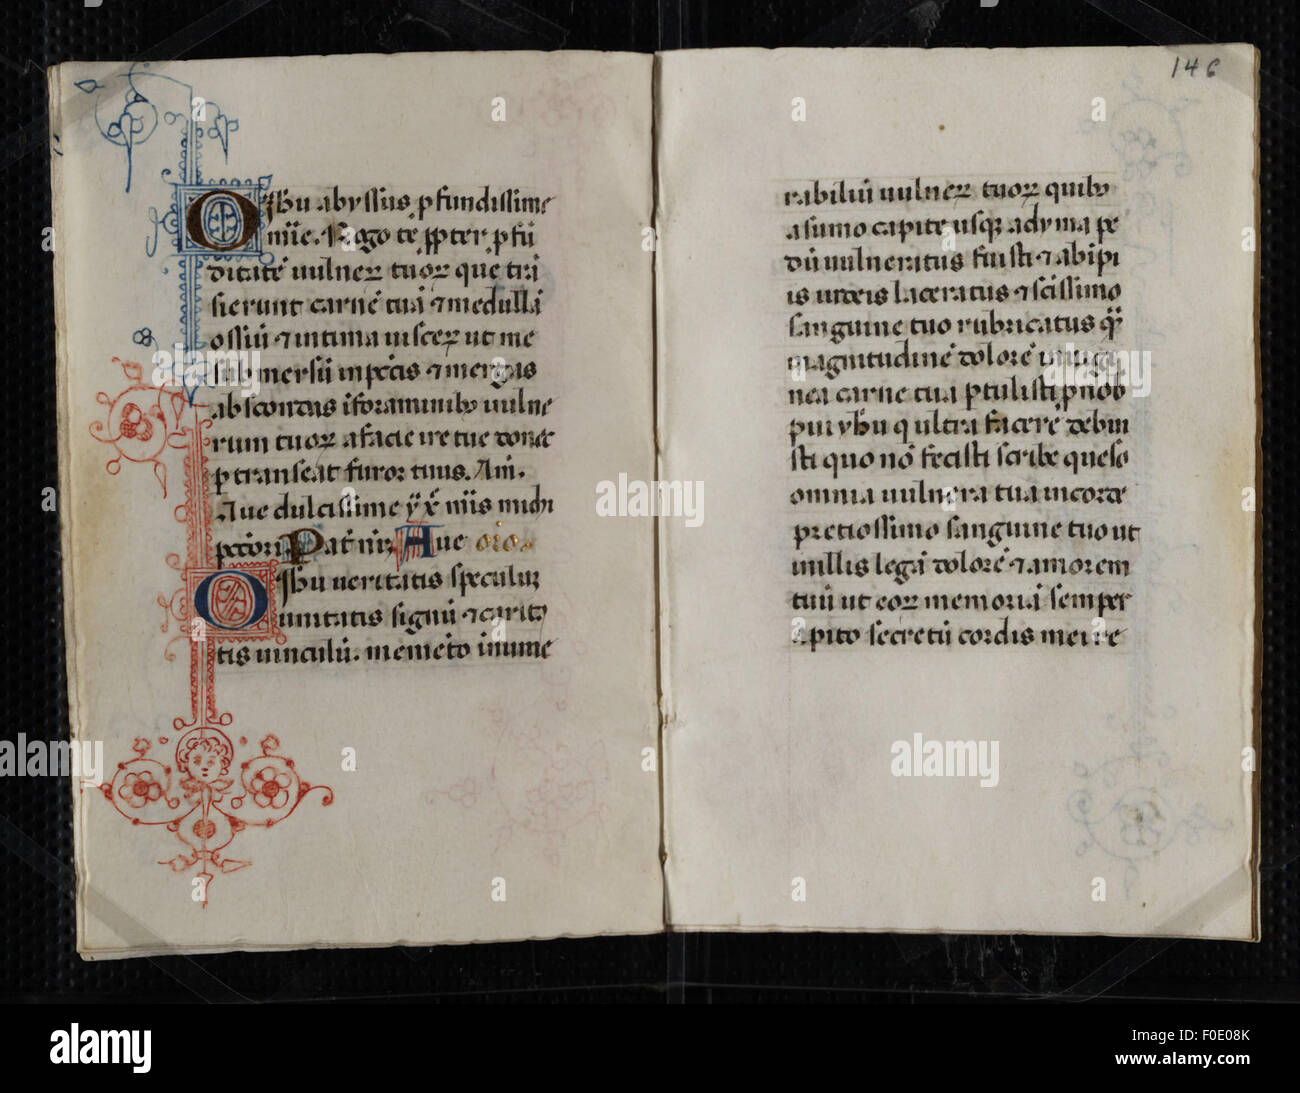 O Jhu abyssus ꝓfundissime
mīe. Rogo te ꝓpter ꝓfū
ditatē uulneꝝ tuoꝝ que trā
sierunt carnē tuā ⁊ medullā
ossiū ⁊ intima uisceꝝ ut me
sub mersū in pctīs ⁊ mergas
absconcas ī foraminibꝫ uulne
rum tuoꝝ a facie ire tue donec
ꝑ transeat furor tuus. Am̄.
Aue dulcissime mīs michi
pctōri Pat̄ nr̄ Aue
O Jhu ueritatis speculū
unitatis signū ⁊ carita
tis uinculū. memēto inume
146
rabiliū uulneꝝ tuoꝝ quibꝫ
a sumo capite usqꝫ ad yma pe
dū uulneratus fuisti ⁊ ab ipi
is iudeis laceratus ⁊ scīssimo
sanguine tuo rubricatus
magnitudinē dolorē in uirgi
nea carne tua ꝑtulisti ꝓ nob̄
pii yhu q̄ ultra facere debui
sti quo nō fecisti scribe queso
omnia uulnera tua in corde
pretiossimo sanguine tuo ut
in illis legā dolorē ⁊ amorem
tuū ut eoꝝ memoriā semper
apīto secretū cordis mei re
alamy
F0E08K
www.alamy.com